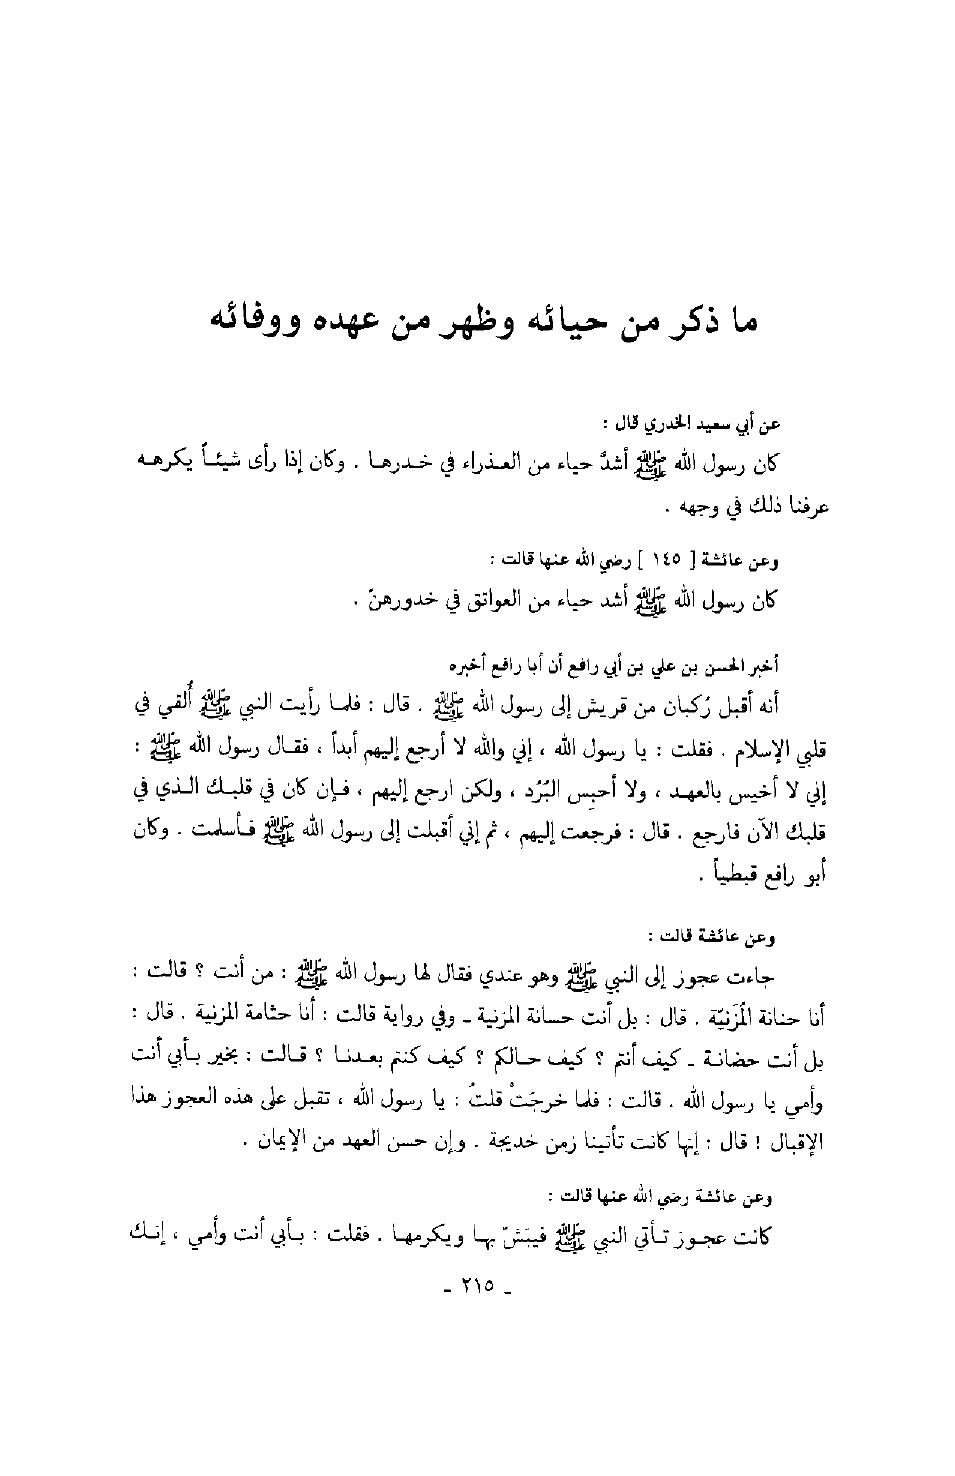 ما ذكر من حيائه وظهر من عهده ووفائه
عن أبي سعيد الخدري قال :
كان رسول الله ﷺ أشدَّ حياء من العذراء في خدرها . وكان إذا رأى شيئاً يكرهه
عرفنا ذلك في وجهه .
وعن عائشة [ ١٤٥ ] رضي الله عنها قالت :
كان رسول الله ﷺ أشد حياء من العواتق في خدورهنّ .
أخبر الحسن بن علي بن أبي رافع أن أبا رافع أخبره
أنه أقبل رُكبان من قريش إلى رسول الله ﷺ . قال : فلما رأيت النبي ﷺ أُلقي في
قلبي الإسلام . فقلت : يا رسول الله ، إني والله لا أرجع إليهم أبداً ، فقال رسول الله ﷺ :
إني لا أخيس بالعهد ، ولا أحبِس البُرُد ، ولكن ارجع إليهم ، فإن كان في قلبك الذي في
قلبك الآن فارجع . قال : فرجعت إليهم ، ثم إني أقبلت إلى رسول الله ﷺ فأسلمت . وكان
أبو رافع قبطياً .
وعن عائشة قالت :
جاءت عجوز إلى النبي ﷺ وهو عندي فقال لها رسول الله ﷺ : من أنت ؟ قالت :
أنا حنانة المُزَنيّة . قال : بل أنت حسانة المزنية ـ وفي رواية قالت : أنا حثامة المزنية . قال :
بل أنت حضانة ـ كيف أنتم ؟ كيف حالكم ؟ كيف كنتم بعدنا ؟ قالت : بخير بأبي أنت
وأمي يا رسول الله . قالت : فلما خرجَتْ قلتُ : يا رسول الله ، تقبل على هذه العجوز هذا
الإقبال ! قال : إنها كانت تأتينا زمن خديجة . وإن حسن العهد من الإيمان .
وعن عائشة رضي الله عنها قالت :
كانت عجوز تأتي النبي ﷺ فيبَشّ بها ويكرمها . فقلت : بأبي أنت وأمي ، إنك
ـ ٢١٥ ـ